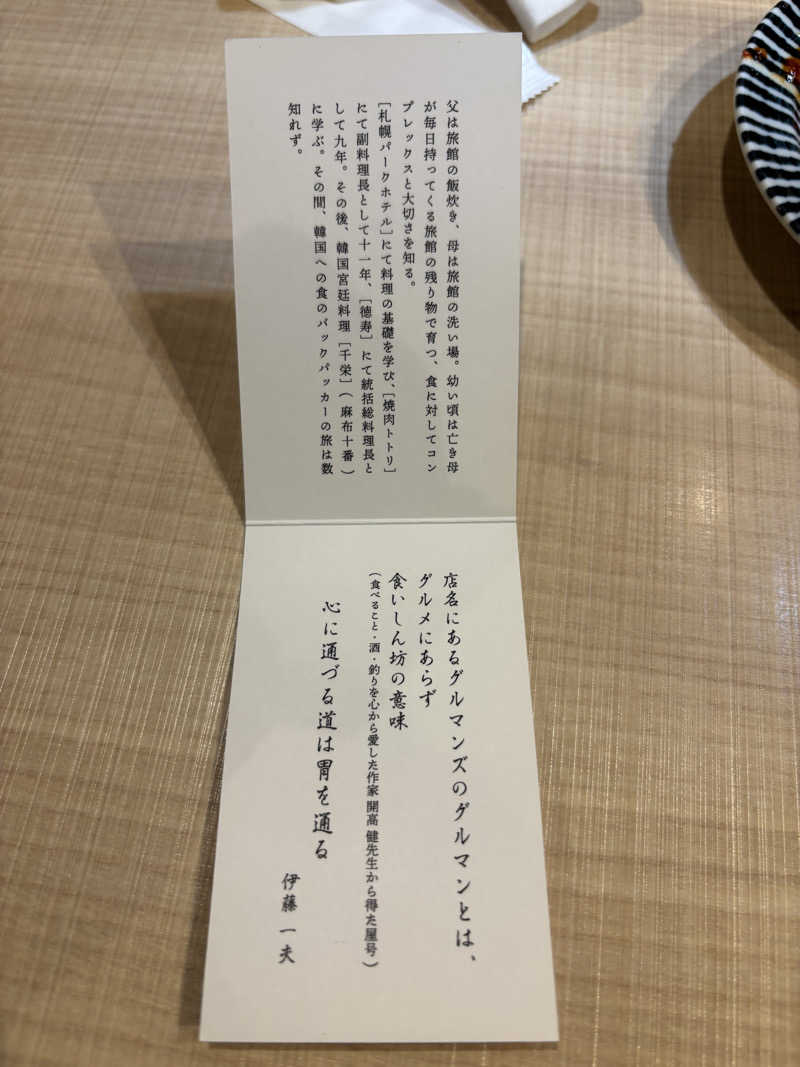 父は旅館の飯炊き、母は旅館の洗い場。幼い頃は亡き母
が毎日持ってくる旅館の残り物で育つ、食に対してコン
プレックスと大切さを知る。
［札幌パークホテル］にて料理の基礎を学び、［焼肉トトリ］
にて副料理長として十一年、［徳寿］にて統括総料理長と
して九年。その後、韓国宮廷料理［千栄］（麻布十番）
に学ぶ。その間、韓国への食のバックパッカーの旅は数
知れず。
店名にあるグルマンズのグルマンとは、
グルメにあらず
食いしん坊の意味
（食べること・酒・釣りを心から愛した作家 開高 健先生から得た屋号）
心に通づる道は胃を通る
伊藤 一夫